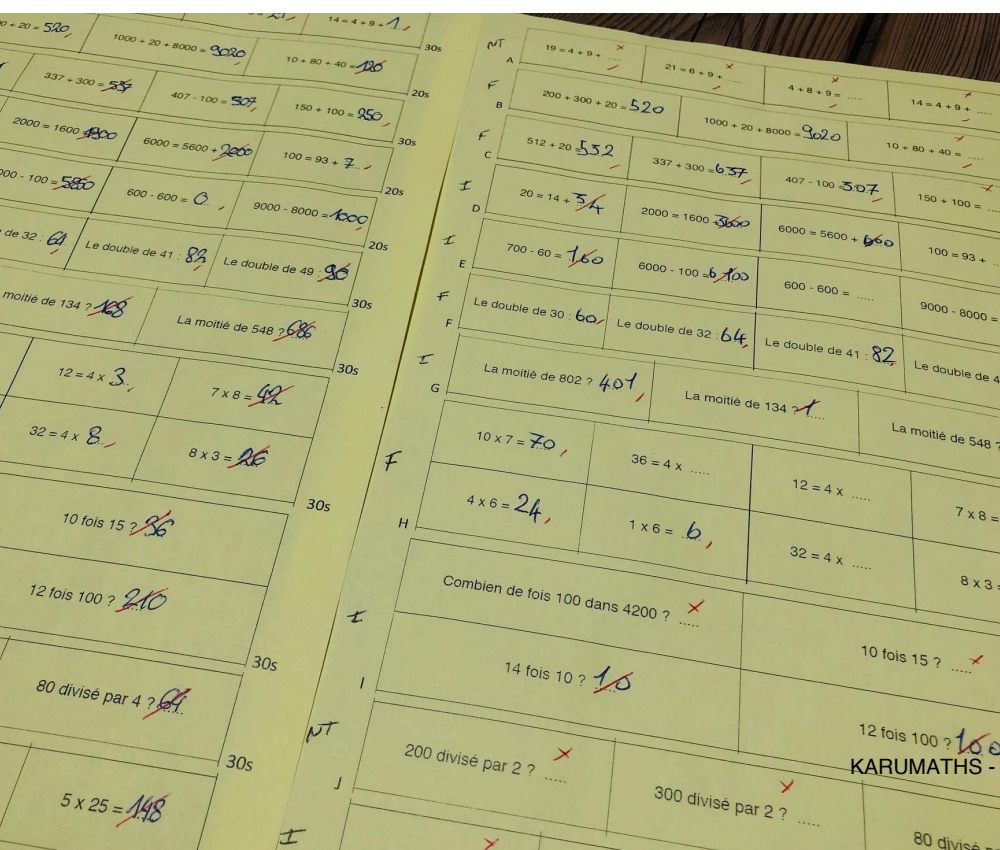 00 + 20 = 520
1000 + 20 + 8000 = 9020
14 = 4 + 9 + 1
10 + 80 + 40 = 126
30s
337 + 300 = 557
407 - 100 = 507
150 + 100 = 950
20s
2000 = 1600
6000 = 5600 + 2000
100 = 93 + 7
30s
000 - 100 = 580
600 - 600 = 0
9000 - 8000 = 1000
20s
de 32 : 64
Le double de 41 : 82
Le double de 49 : 96
20s
moitié de 134 ? 168
La moitié de 548 ? 686
30s
12 = 4 x 3
7 x 8 = 42
30s
32 = 4 x 8
8 x 3 = 26
10 fois 15 ? 36
30s
12 fois 100 ? 210
80 divisé par 4 ? 64
30s
5 x 25 = 148
30s
NT
A
19 = 4 + 9 + .....
21 = 6 + 9 + .....
4 + 8 + 9 = .....
14 = 4 + 9 + .....
F
B
200 + 300 + 20 = 520
1000 + 20 + 8000 = 9020
10 + 80 + 40 = .....
F
C
512 + 20 = 532
337 + 300 = 637
407 - 100 = 307
150 + 100 = .....
I
D
20 = 14 + 34
2000 = 1600 3600
6000 = 5600 + 600
100 = 93 + ..
I
E
700 - 60 = 160
6000 - 100 = 6100
600 - 600 = .....
9000 - 8000 =
F
F
Le double de 30 : 60
Le double de 32 : 64
Le double de 41 : 82
Le double de 4
I
G
La moitié de 802 ? 401
La moitié de 134 ? 1
La moitié de 548 ?
F
H
10 x 7 = 70
36 = 4 x .....
12 = 4 x .....
7 x 8 =
4 x 6 = 24
1 x 6 = 6
32 = 4 x .....
8 x 3 =
I
I
Combien de fois 100 dans 4200 ? .....
10 fois 15 ? .....
14 fois 10 ? 10
12 fois 100 ? 100
NT
J
200 divisé par 2 ? .....
300 divisé par 2 ? .....
80 divisé
I
KARUMATHS -